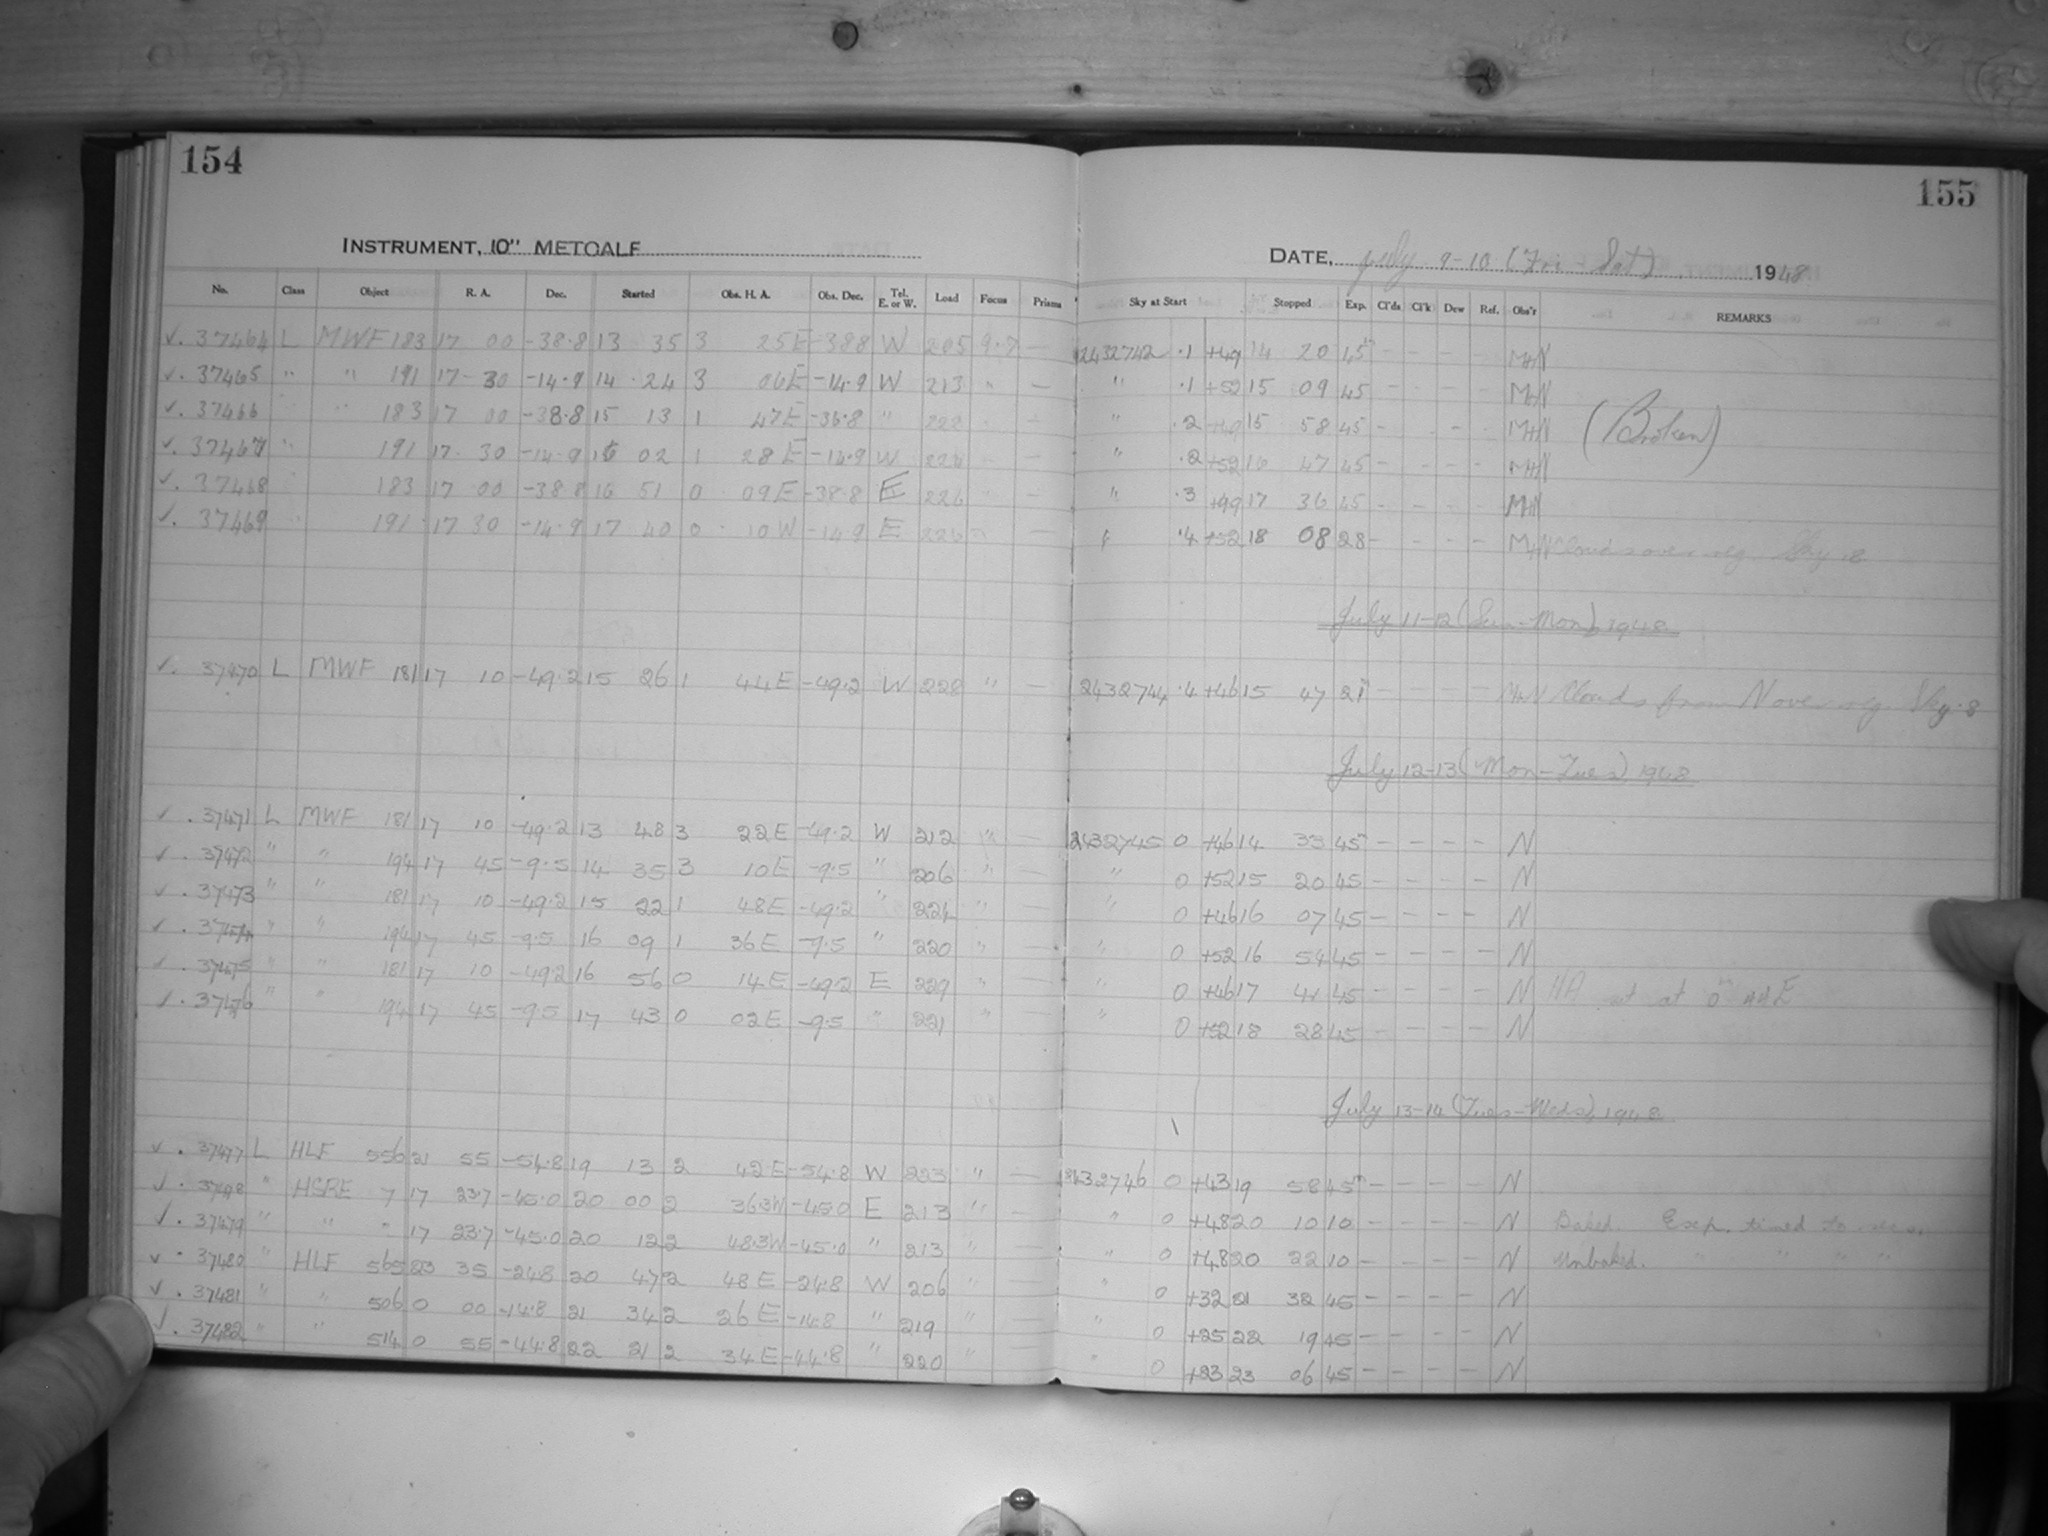 154
155
INSTRUMENT, 10" METCALF
DATE, July 9-10 (Fri - Sat) 1948
No. Class Object R. A. Dec. Started Obs. H. A. Obs. Dec. Tel. E. or W. Load Focus Prisms Sky at Start Stopped Exp. Cl'ds Cl'k Dew Ref. Obs'r REMARKS
✓. 37464 L MWF 183 17 00 -38.8 13 35 3 25E -38.8 W 205 9.7 — 2432742 .1 +49 14 20 45m - - - - MHN
✓. 37465 " " 191 17 30 -14.9 14 24 3 06E -14.9 W 213 " — " .1 +52 15 09 45 - - - - MHN
✓. 37466 " " 183 17 00 -38.8 15 13 1 47E -38.8 " 222 " .2 +49 15 58 45 - - - - MHN (Broken)
✓. 37467 " 191 17 30 -14.9 16 02 1 28E -14.9 W " .2 +52 16 47 45 - - - - MHN
✓. 37468 183 17 00 -38.8 16 51 0 09E -38.8 E 226 " — " .3 +49 17 36 45 - - - - MHN
✓. 37469 " 191 17 30 -14.9 17 40 0 10W -14.9 E " .4 +52 18 08 28 - - - - MHN Clouds over reg. Sky
July 11-12 (Sun-Mon) 1948
✓. 37470 L MWF 181 17 10 -49.2 15 26 1 44E -49.2 W 228 " — 2432744 .4 +46 15 47 21m - - - - MHN Clouds from N over reg. Sky .8
July 12-13 (Mon-Tues) 1948
✓. 37471 L MWF 181 17 10 -49.2 13 48 3 22E -49.2 W 212 " — 2432745 0 +46 14 33 45m - - - - N
✓. 37472 " " 194 17 45 -9.5 14 35 3 10E -9.5 " 206 " — " 0 +52 15 20 45 - - - - N
✓. 37473 " " 181 17 10 -49.2 15 22 1 48E -49.2 " 224 " — " 0 +46 16 07 45 - - - - N
✓. 37474 " " 194 17 45 -9.5 16 09 1 36E -9.5 " 220 " — " 0 +52 16 54 45 - - - - N
✓. 37475 " " 181 17 10 -49.2 16 56 0 14E -49.2 E 229 " — " 0 +46 17 41 45 - - - - N HA set at 0h 44E
✓. 37476 " " 194 17 45 -9.5 17 43 0 02E -9.5 " 221 " — " 0 +52 18 28 45 - - - - N
July 13-14 (Tues-Weds) 1948
✓. 37477 L HLF 556 21 55 -54.8 19 13 2 42E -54.8 W 223 " — 2432746 0 +43 19 58 45m - - - - N
✓. 37478 " HSRE 7 17 23.7 -45.0 20 00 2 36.3W -45.0 E 213 " — " 0 +48 20 10 10 - - - - N Baked. Exp. timed to
✓. 37479 " " " 17 23.7 -45.0 20 12 2 48.3W -45.0 " 213 " — " 0 +48 20 22 10 - - - - N Unbaked. " " " "
✓. 37480 " HLF 565 23 35 -24.8 20 47 2 48E -24.8 W 206 " — " 0 +32 21 32 45 - - - - N
✓. 37481 " " 506 0 00 -14.8 21 34 2 26E -14.8 " 219 " — " 0 +25 22 19 45 - - - - N
✓. 37482 " " 514 0 55 -44.8 22 21 2 34E -44.8 " 220 " — " 0 +23 23 06 45 - - - - N